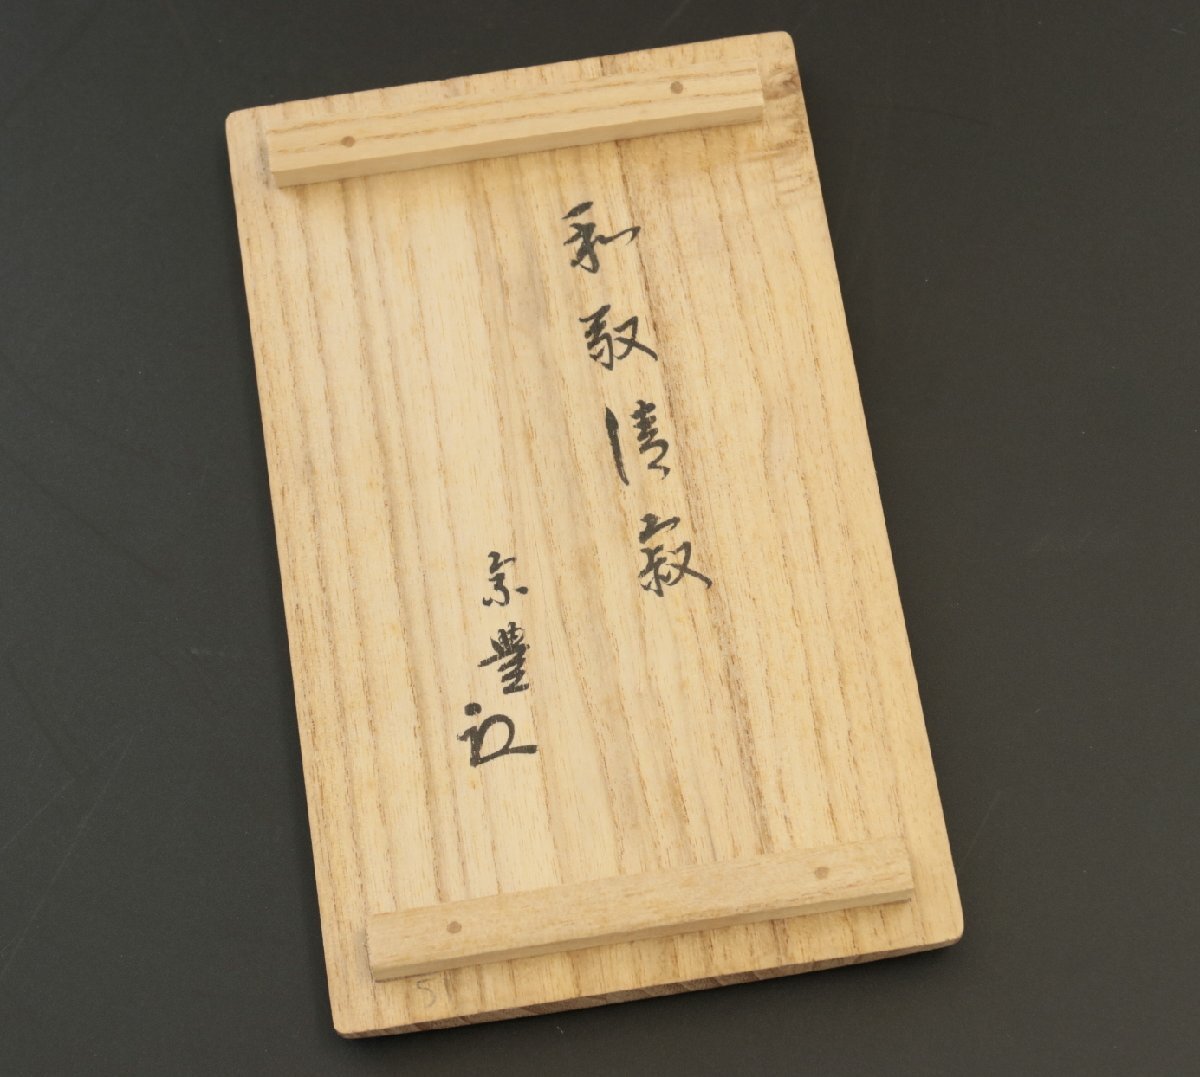 和敬清寂
宗豊